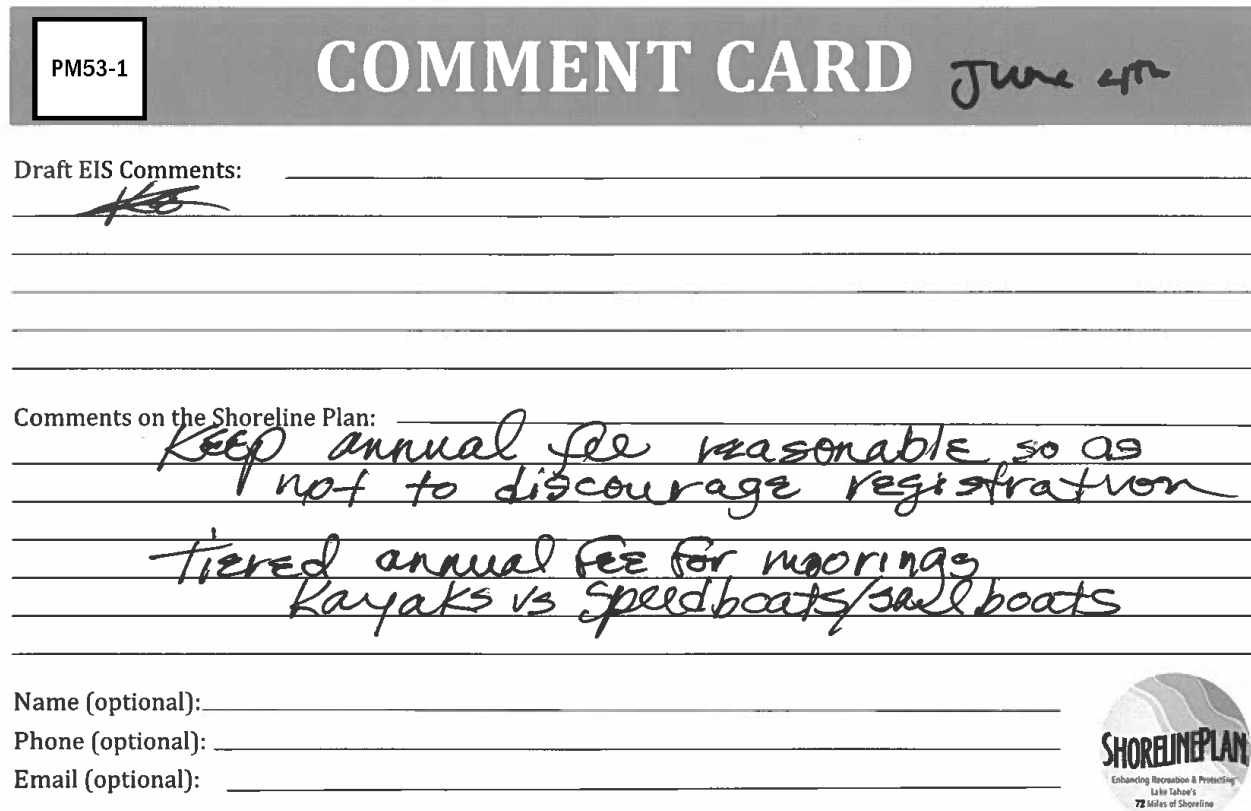 PM53-1
COMMENT CARD June 4th
Draft EIS Comments:
Comments on the Shoreline Plan:
Keep annual fee reasonable so as
not to discourage registration
Tiered annual fee for moorings
Kayaks vs Speedboats/sailboats
Name (optional):
Phone (optional):
Email (optional):
SHORELINEPLAN
Enhancing Recreation & Protecting
Lake Tahoe's
72 Miles of Shoreline